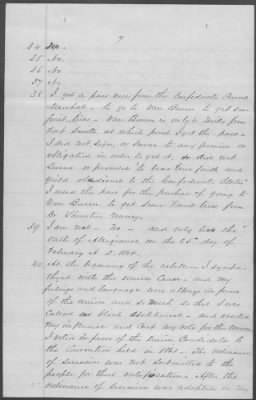 7
34 No.
35 No.
36 No
37 No
38 I got a pass once from the Confederate Provost
Marshal - to go to Van Buren to get some
fruit trees - Van Buren is only 5 miles from
Fort Smith at which point I got the pass -
I did not sign, or swear to any promise or
obligation in order to get it, & did not
swear or promise to bear true faith and
yield obedience to the Confederate States
I used the pass for the purpose of going to
Van Buren to get some fruit trees from
Dr Thurston Nursery.
39 I am not - No - and only took the
oath of Allegiance on the 25th day of
February A. D. 1864.
40 At the beginning of the rebellion I sympa-
thized with the Union Cause - and my
feelings and language were always in favor
of the Union and so much so that I was
called a black abolitionist - and exerted
my influence and cast my vote for the Union
I voted in favor of the Union Candidates to
the Convention held in 1861 - The ordinance
of Secession was not submitted to the
people for their ratification. After the
ordinance of Secession was adopted by my